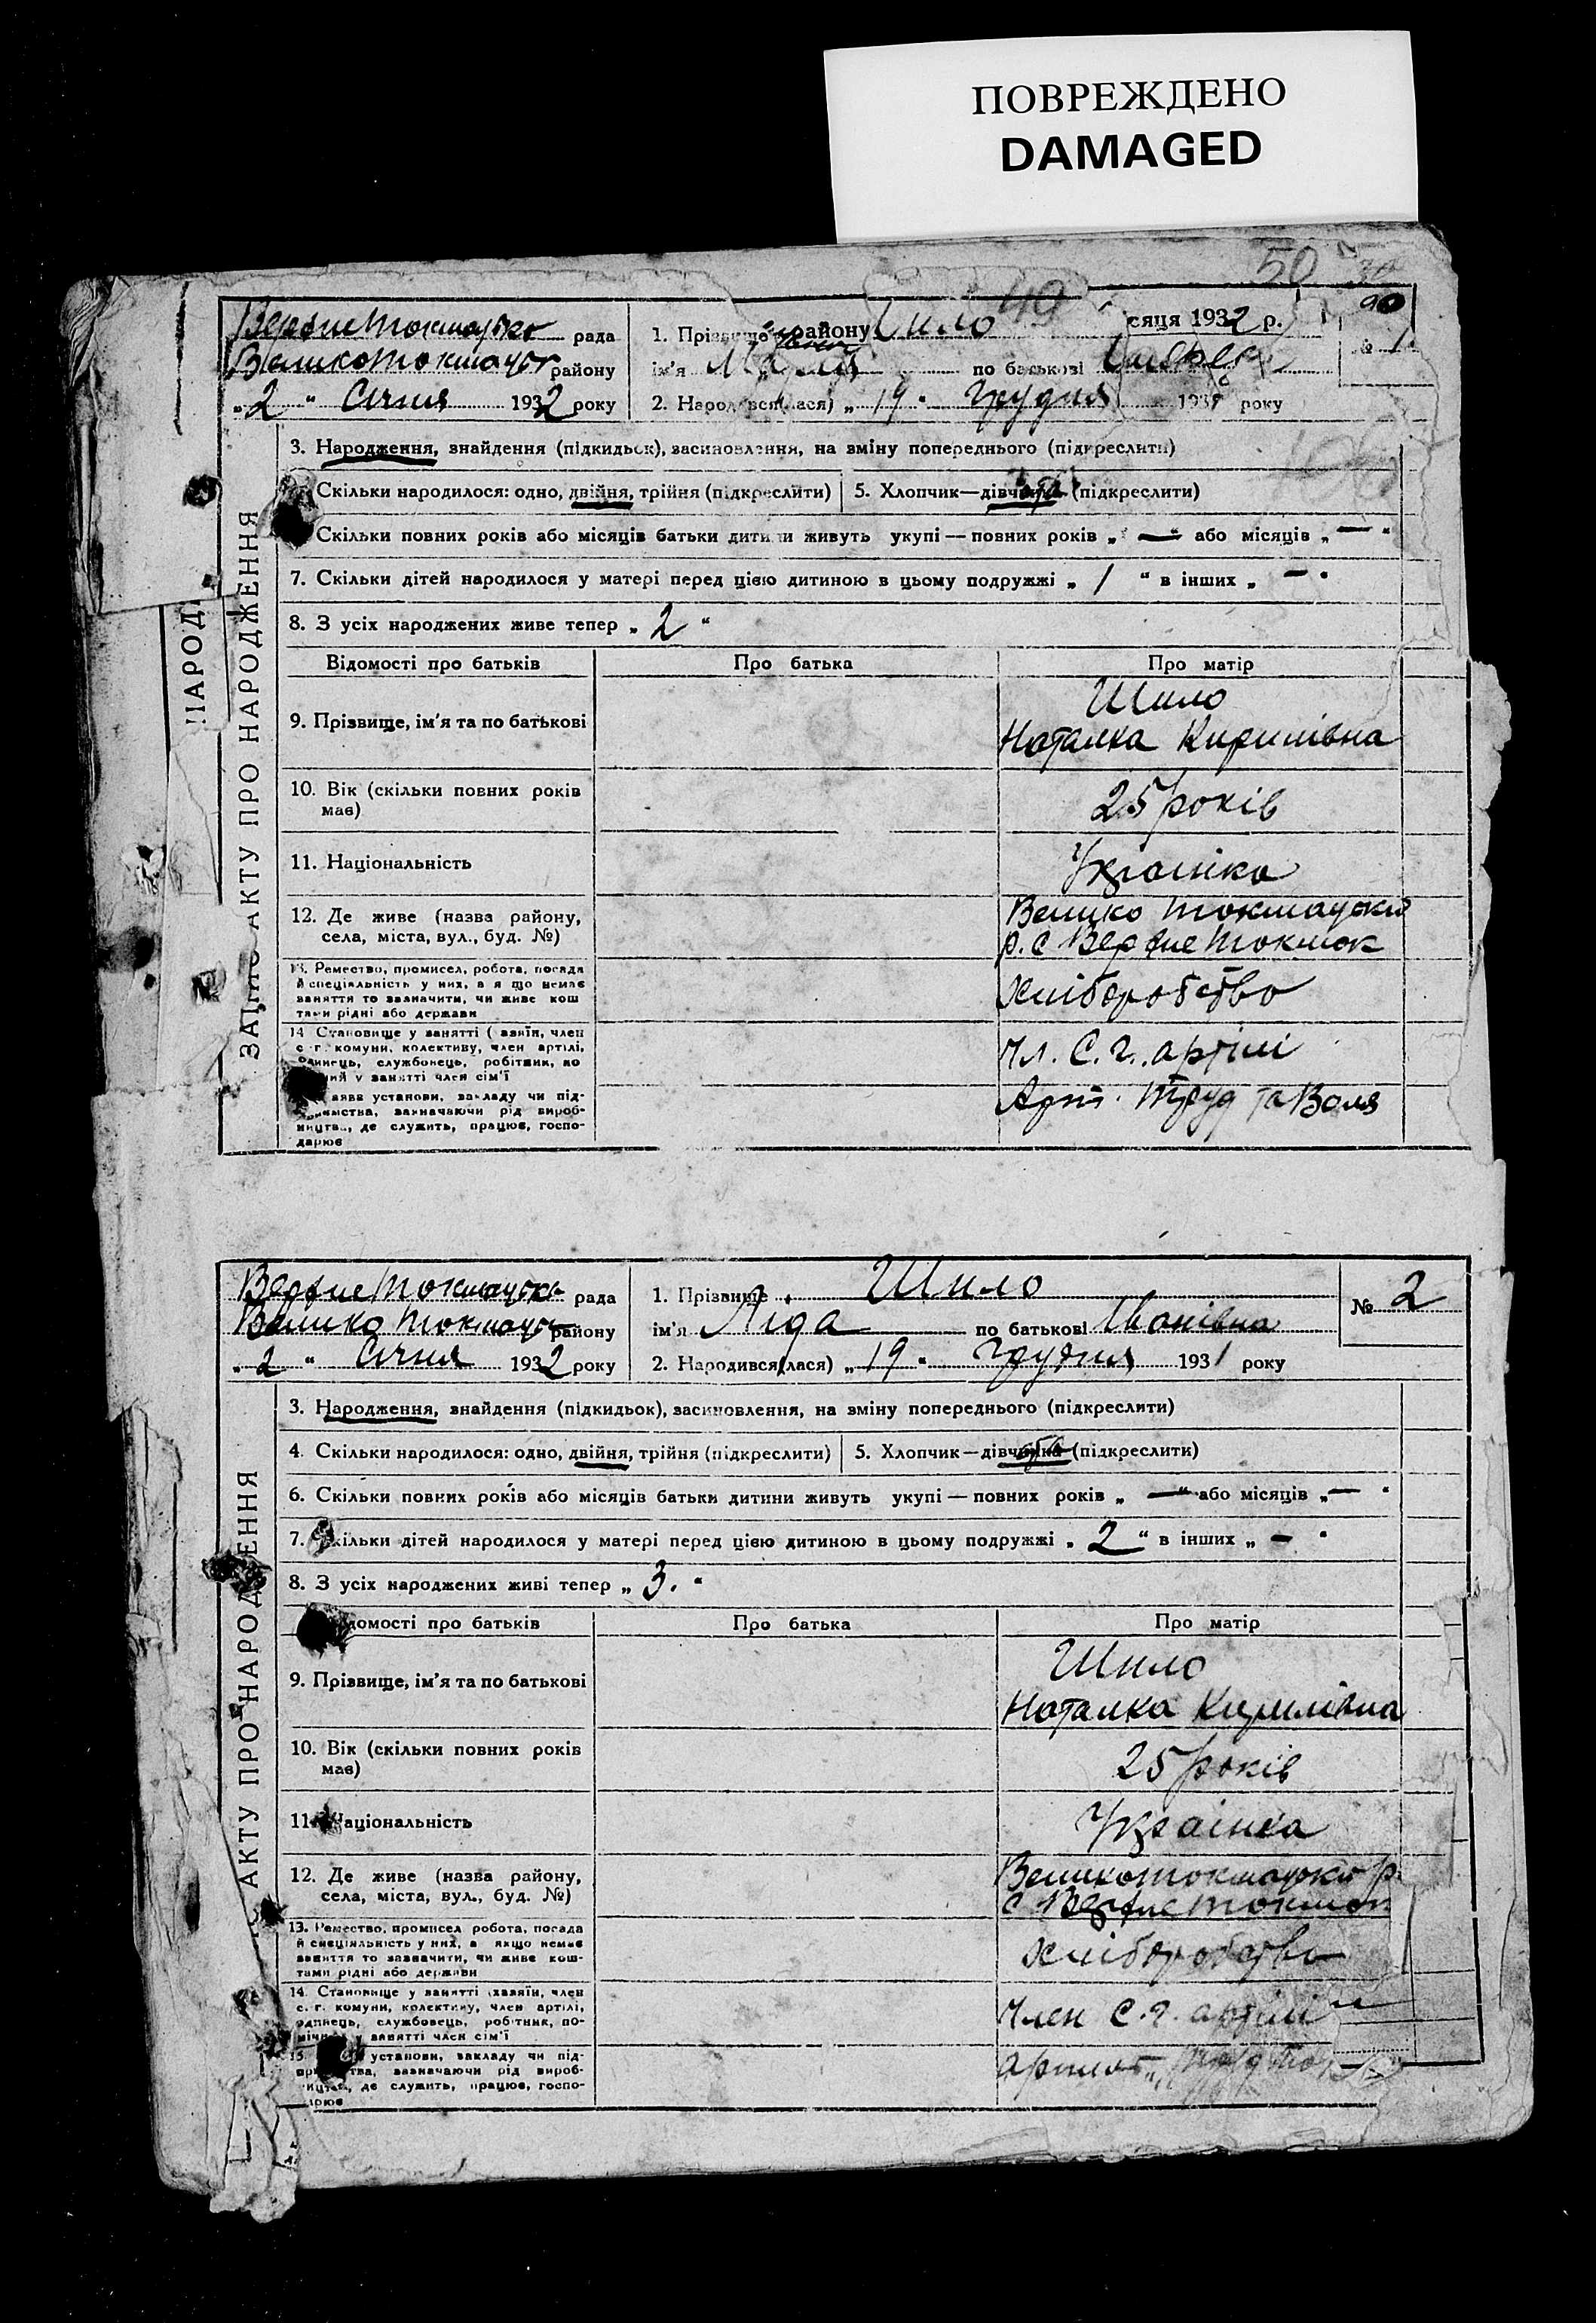 ПОВРЕЖДЕНО
DAMAGED
50
49
Верхнетокмацька рада
Великотокмацьк району
„2“ Січня 1932 року
1. Прізвище району Шило сяця 1932 р.
ім'я по батькові
2. Народився(лася) „19“ Грудня 1931 року
№ 1
3. Народження, знайдення (підкидьок), засиновлення, на зміну попереднього (підкреслити)
Скільки народилося: одно, двійня, трійня (підкреслити)
5. Хлопчик—дівчинка (підкреслити)
Скільки повних років або місяців батьки дитини живуть укупі — повних років „—“ або місяців „—“
7. Скільки дітей народилося у матері перед цією дитиною в цьому подружжі „1“ в інших „—“
8. З усіх народжених живе тепер „2“
Відомості про батьків
Про батька
Про матір
9. Прізвище, ім'я та по батькові
Шило
Наталка Кирилівна
10. Вік (скільки повних років
має)
25 років
11. Національність
Українка
12. Де живе (назва району,
села, міста, вул., буд. №)
Велико Токмацько
р. с Верхне Токмак
13. Ремество, промисел, робота, посада
й спеціяльність у них, а я що немає
заняття то зазначити, чи живе кош
тами рідні або держави
Хліборобство
14 Становище у занятті (хазяїн, член
с г. комуни, колективу, член артілі,
одинець, службовець, робітник, по
ний у занятті член сім'ї
Чл. С. г. артілі
азва установи, закладу чи під-
приємства, зазначаючи рід вироб-
ництва, де служить, працює, госпо-
дарює
Арт. Труд та Воля
ЗАПИС АКТУ ПРО НАРОДЖЕННЯ
НАРОД
Верхнетокмацька рада
Велико Токмацьк району
„2“ Січня 1932 року
1. Прізвище Шило
ім'я Ліда по батькові Іванівна
2. Народився(лася) „19“ Грудня 1931 року
№ 2
3. Народження, знайдення (підкидьок), засиновлення, на зміну попереднього (підкреслити)
4. Скільки народилося: одно, двійня, трійня (підкреслити)
5. Хлопчик—дівчинка (підкреслити)
6. Скільки повних років або місяців батьки дитини живуть укупі — повних років „—“ або місяців „—“
7. Скільки дітей народилося у матері перед цією дитиною в цьому подружжі „2“ в інших „—“
8. З усіх народжених живі тепер „3.“
домості про батьків
Про батька
Про матір
9. Прізвище, ім'я та по батькові
Шило
Наталка Кирилівна
10. Вік (скільки повних років
має)
25 років
11. Національність
Українка
12. Де живе (назва району,
села, міста, вул., буд. №)
Великотокмацько р.
с Верхне Токмак
13. Ремество, промисел робота, посада
й спеціяльність у них, а якщо немає
заняття то зазначити, чи живе кош-
тами рідні або держави
Хліборобство
14. Становище у занятті (хазяїн, член
с. г. комуни, колективу, член артілі,
одинець, службовець, робітник, по-
мічний у занятті член сім'ї
Член С. г. артілі
15. установи, закладу чи під-
приємства, зазначаючи рід вироб-
ництва, де служить, працює, госпо-
дарює
АКТУ ПРО НАРОДЖЕННЯ